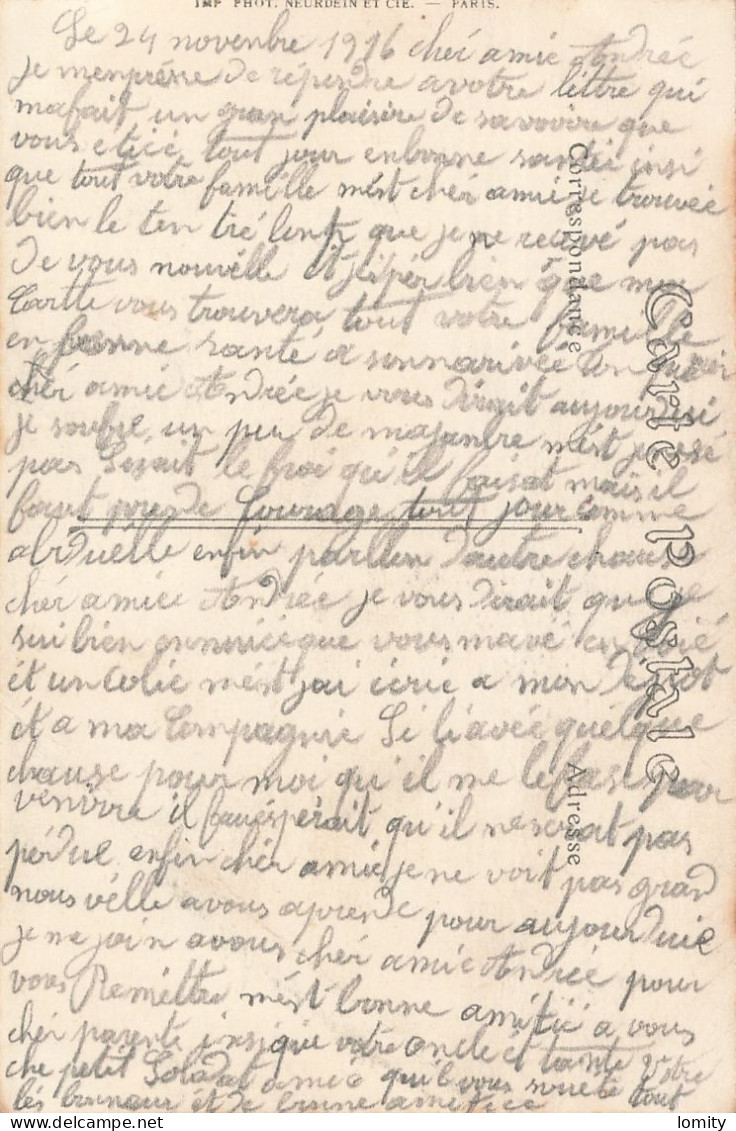 IMP PHOT. NEURDEIN ET CIE. — PARIS.
Carte postale
Correspondance
Adresse
Le 24 novenbre 1916 cher amie Andrée
je menprésse de répendre a votre lettre qui
mafait un gran plaisire de savovire que
vous etiéé tout jour enbonne santée insi
que tout votre famille mést chér amie je trouvée
bien le ten tré lent que je ne recevé pas
de vous nouvélle et jéspér bien que ma
Carte vous trouvera tout votre famille
en bonne santé a sonnarivée
chér amie Andrée je vous dirait aujourdui
je soufre un peu de majanbre mést je sé
pas Sesait le froi qu'il faisat maïs il
faut prende Courage tout jour Comme
abituelle enfin parllen dautre chause
chér amiee Andrée je vous dirait que je
sui bien ennuiée que vous mavé envoié
ét un Colie mést jai écrie a mon dépot
ét a ma Compagnie Si li avée quélque
chause pour moi qu'il me le fase pour
venivre il faut éspérait qu'il ne serait pas
pérdue enfin chér amie je ne voit pas grand
nous vélle a vous aprende pour aujourduie
je ne join a vous chér amie Andrée pour
vous Reméttre mést bonne amitié a vous
chér parents insi que votre oncle ét tante Votre
che petit Soldat amie qui vous souéte tout
lés bonneur et de bonne amitiée